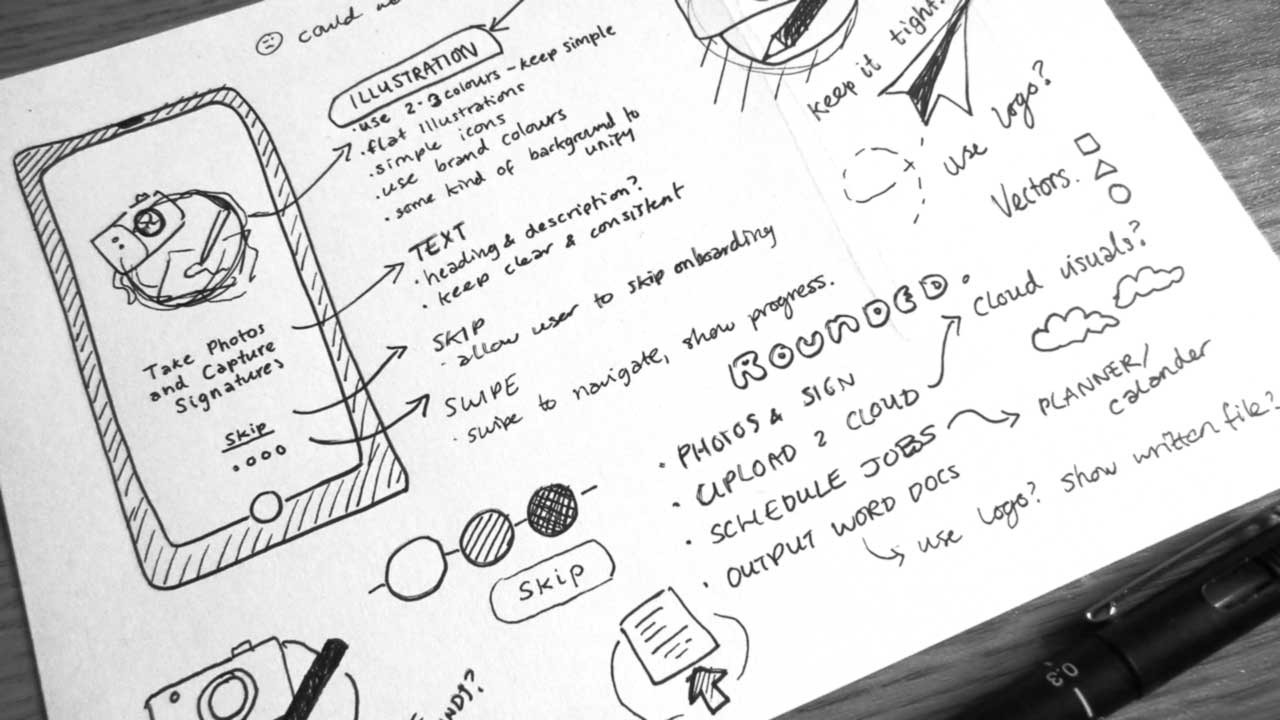 could
ILLUSTRATION
· use 2-3 colours - keep simple
· flat illustrations
· simple icons
· use brand colours
· some kind of background to
unify
TEXT
· heading & description?
· keep clear & consistent
SKIP
· allow user to skip onboarding
SWIPE
· swipe to navigate, show progress.
Take Photos
and Capture
Signatures
Skip
Skip
keep it tight!
use logo?
Vectors.
ROUNDED.
Cloud visuals?
· PHOTOS & SIGN
· UPLOAD 2 CLOUD
· SCHEDULE JOBS
PLANNER/
calander
· OUTPUT WORD DOCS
use logo? show written file?
0.3